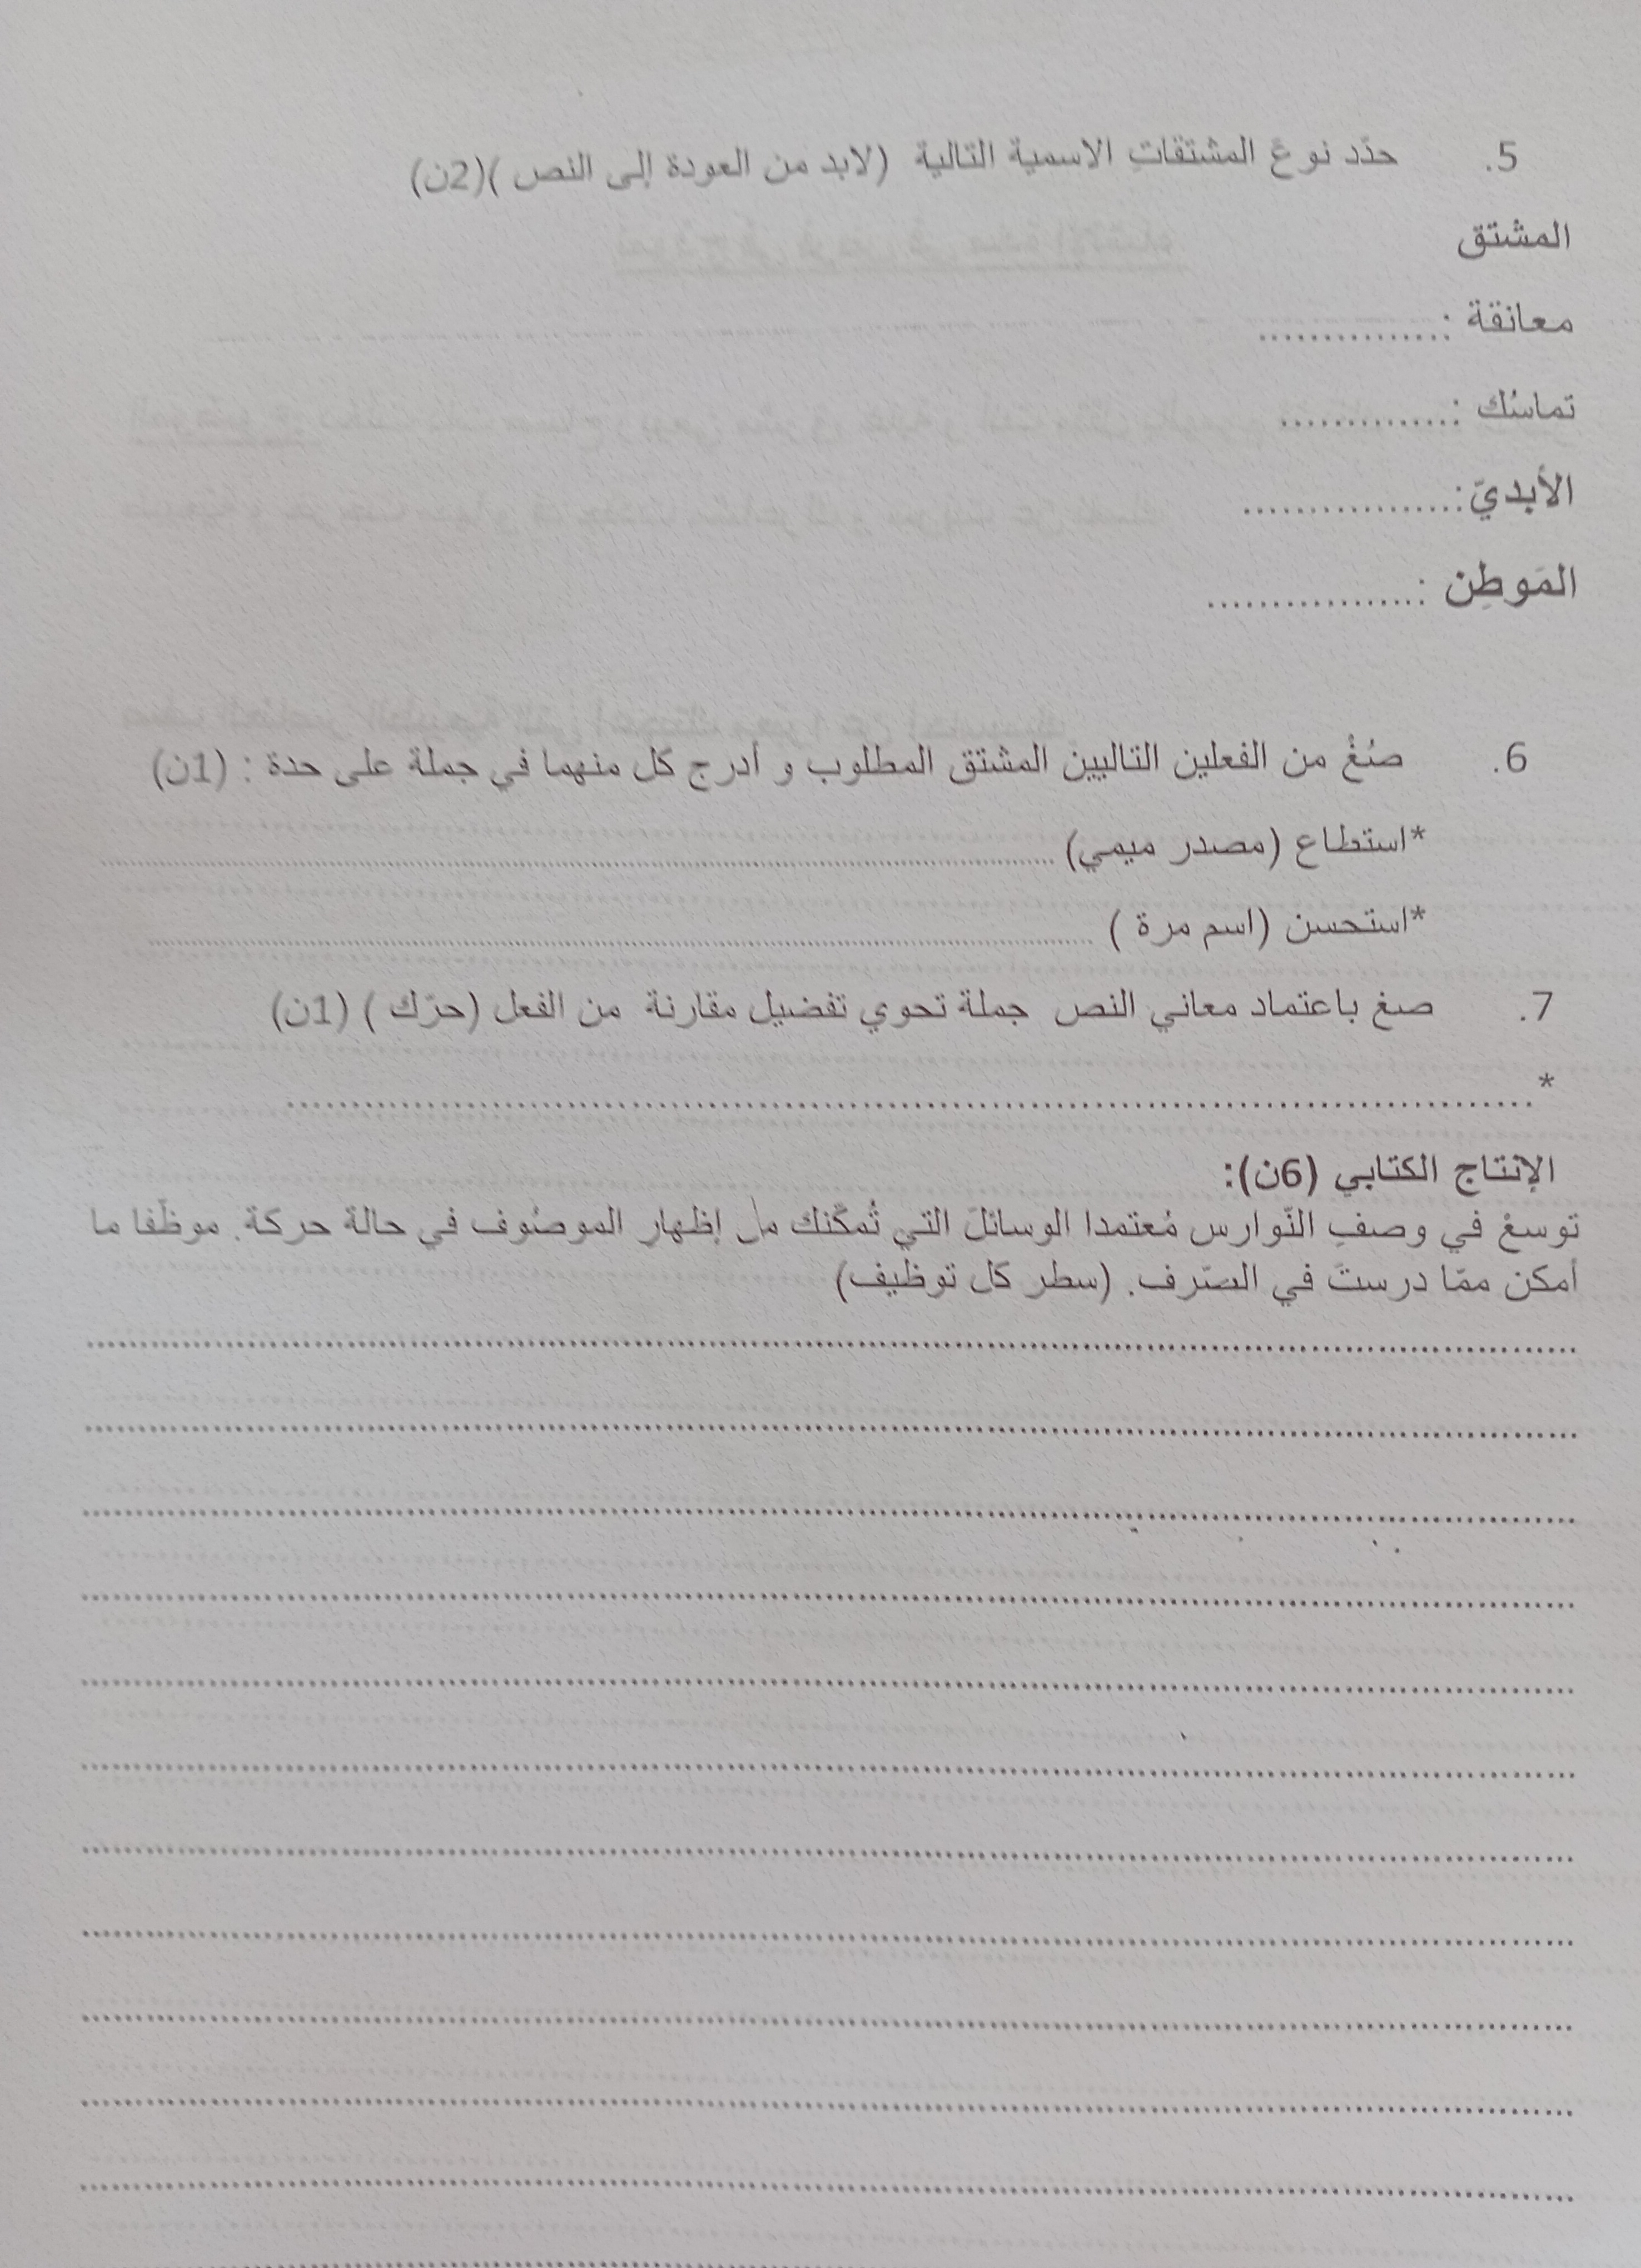 5. حدّد نوعَ المشتقاتِ الاسمية التالية (لابد من العودة إلى النص )(2ن)
المشتق
معانقة :...............
تماسُك :...............
الأبديّ:.................
المَوطِن :.................
6. صُغْ من الفعلين التاليين المشتق المطلوب و أدرج كل منهما في جملة على حدة : (1ن)
*استطاع (مصدر ميمي) ......................................................
*استحسن (اسم مرة ) ......................................................
7. صغ باعتماد معاني النص جملة تحوي تفضيل مقارنة من الفعل (حرّك ) (1ن)
*......................................................
الإنتاج الكتابي (6ن):
توسعْ في وصفِ النّوارس مُعتمدا الوسائلَ التي تُمكّنك من إظهار الموصُوف في حالة حركة. موظّفا ما
أمكن ممّا درستَ في الصّرف. (سطر كل توظيف)